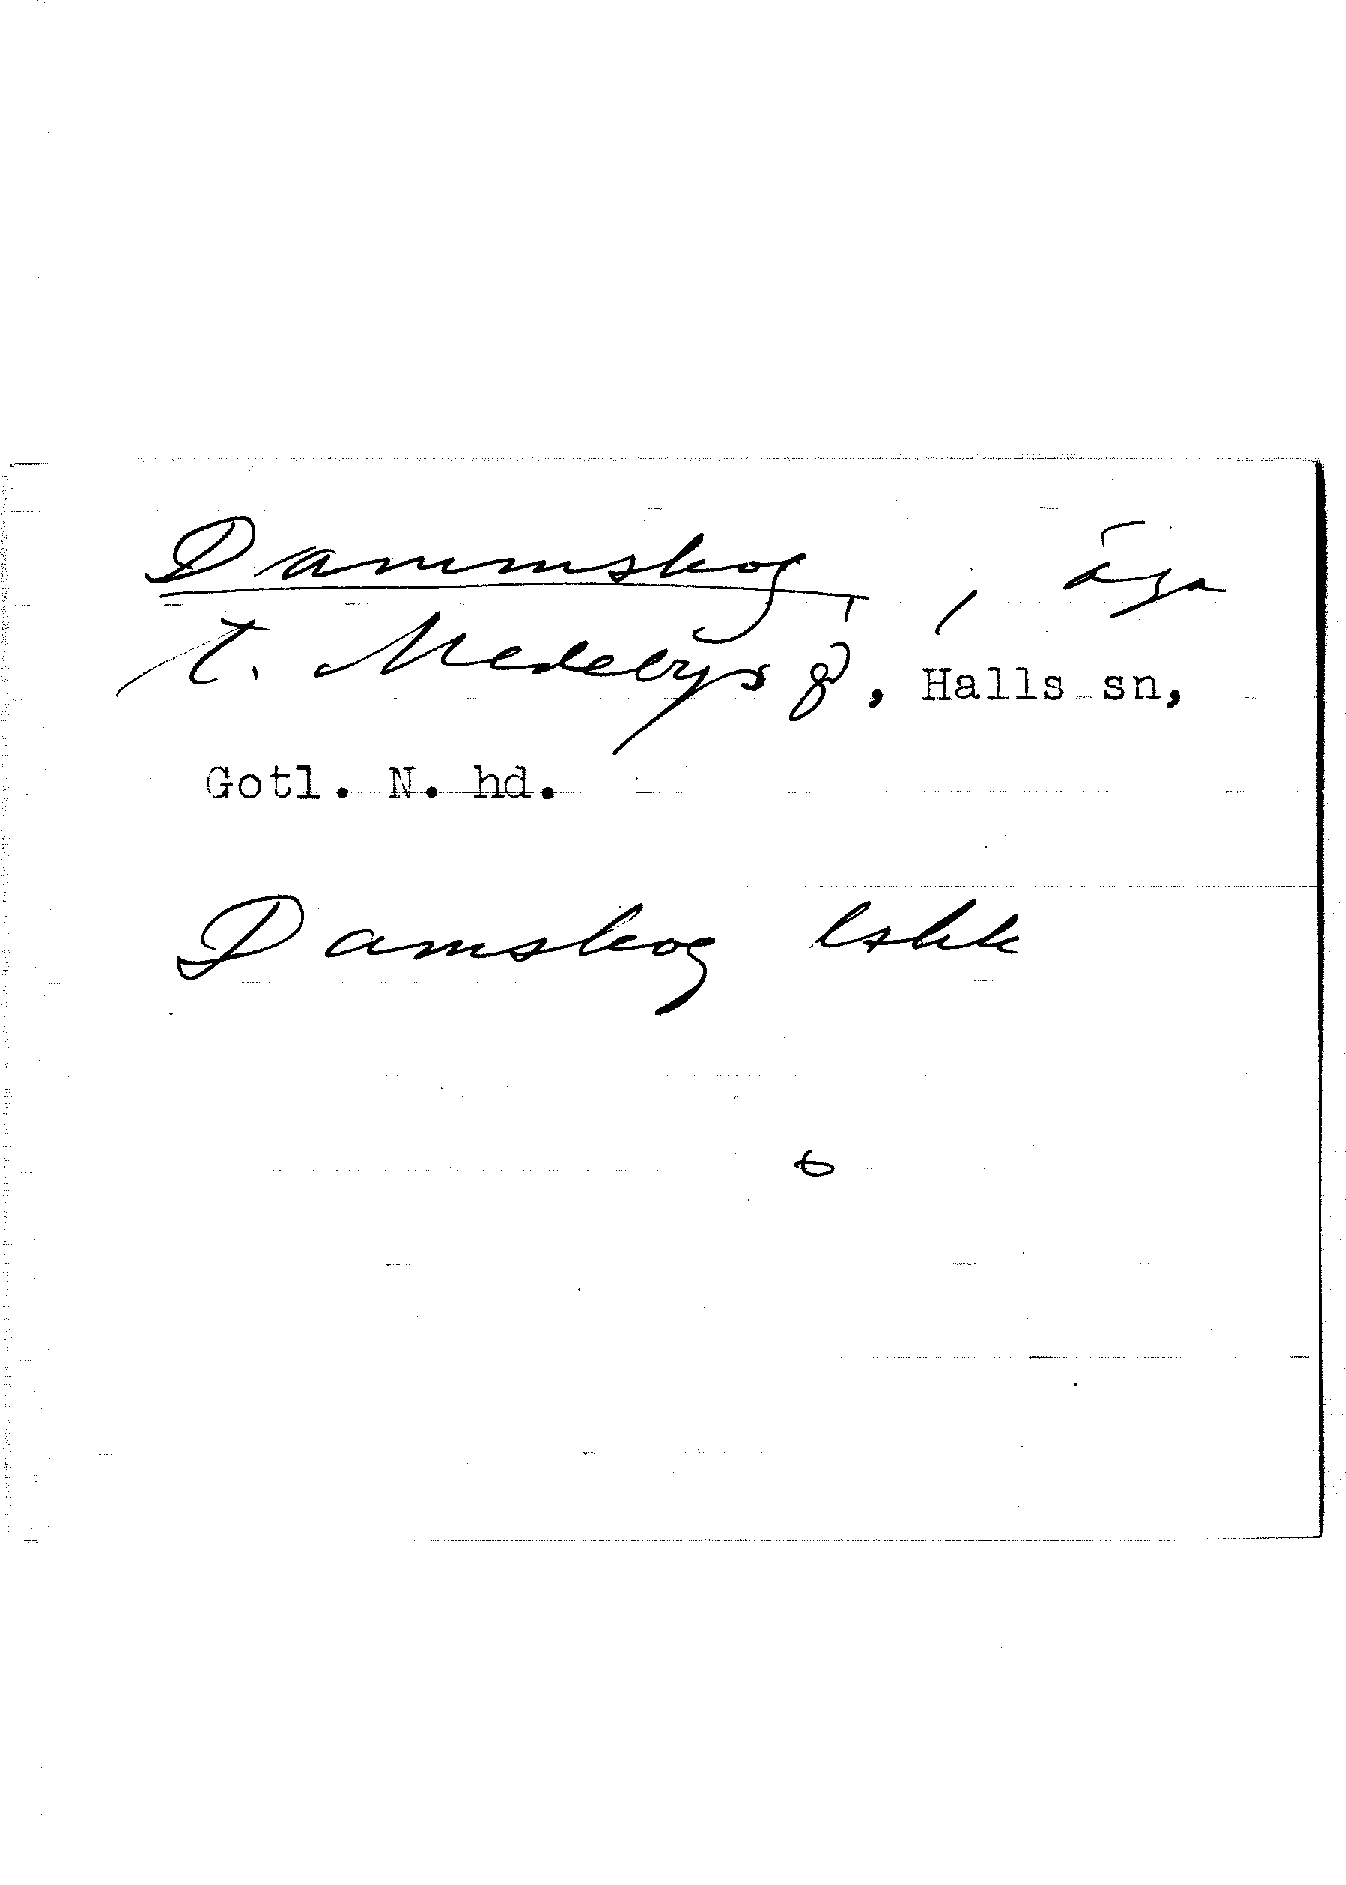 Dammskog, äga
t. Medebys gd, Halls sn,
Gotl. N. hd.
Damskog Lskk